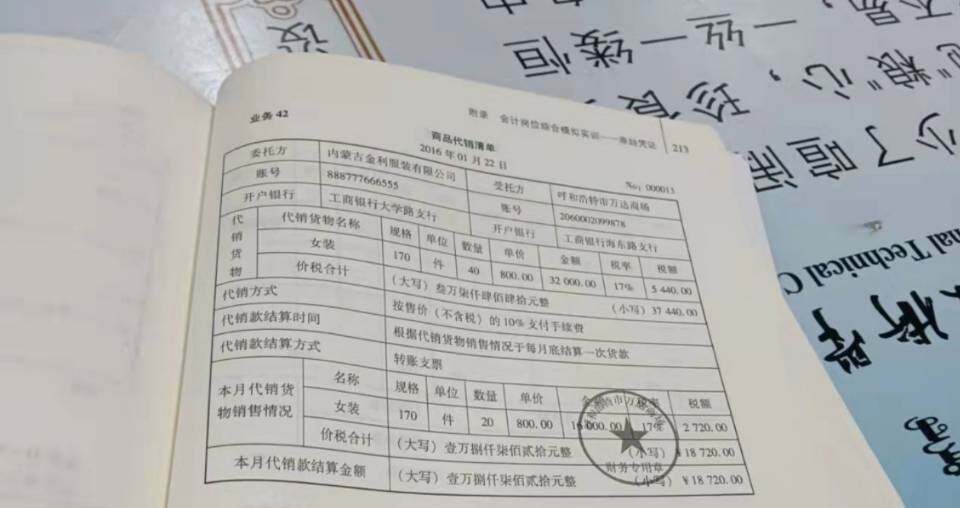 业务 42
附录 会计岗位综合模拟实训——原始凭证 213
商品代销清单
2016 年 01 月 22 日
No: 000013
委托方 内蒙古金利服装有限公司 受托方 呼和浩特市万达商场
账号 888777666555 账号 2060002099878
开户银行 工商银行大学路支行 开户银行 工商银行海东路支行
代销货物 代销货物名称 规格 单位 数量 单价 金额 税率 税额
女装 170 件 40 800.00 32 000.00 17% 5 440.00
价税合计 (大写) 叁万柒仟肆佰肆拾元整 (小写) 37 440.00
代销方式 按售价(不含税)的 10% 支付手续费
代销款结算时间 根据代销货物销售情况于每月底结算一次货款
代销款结算方式 转账支票
本月代销货物销售情况 名称 规格 单位 数量 单价 金 税率 税额
女装 170 件 20 800.00 16 000.00 17% 2 720.00
价税合计 (大写) 壹万捌仟柒佰贰拾元整 (小写) ¥18 720.00
本月代销款结算金额 (大写) 壹万捌仟柒佰贰拾元整 (小写) ¥18 720.00
财务专用章
一丝一缕恒
珍
"粮"心,
少了喧闹
nal Technical C